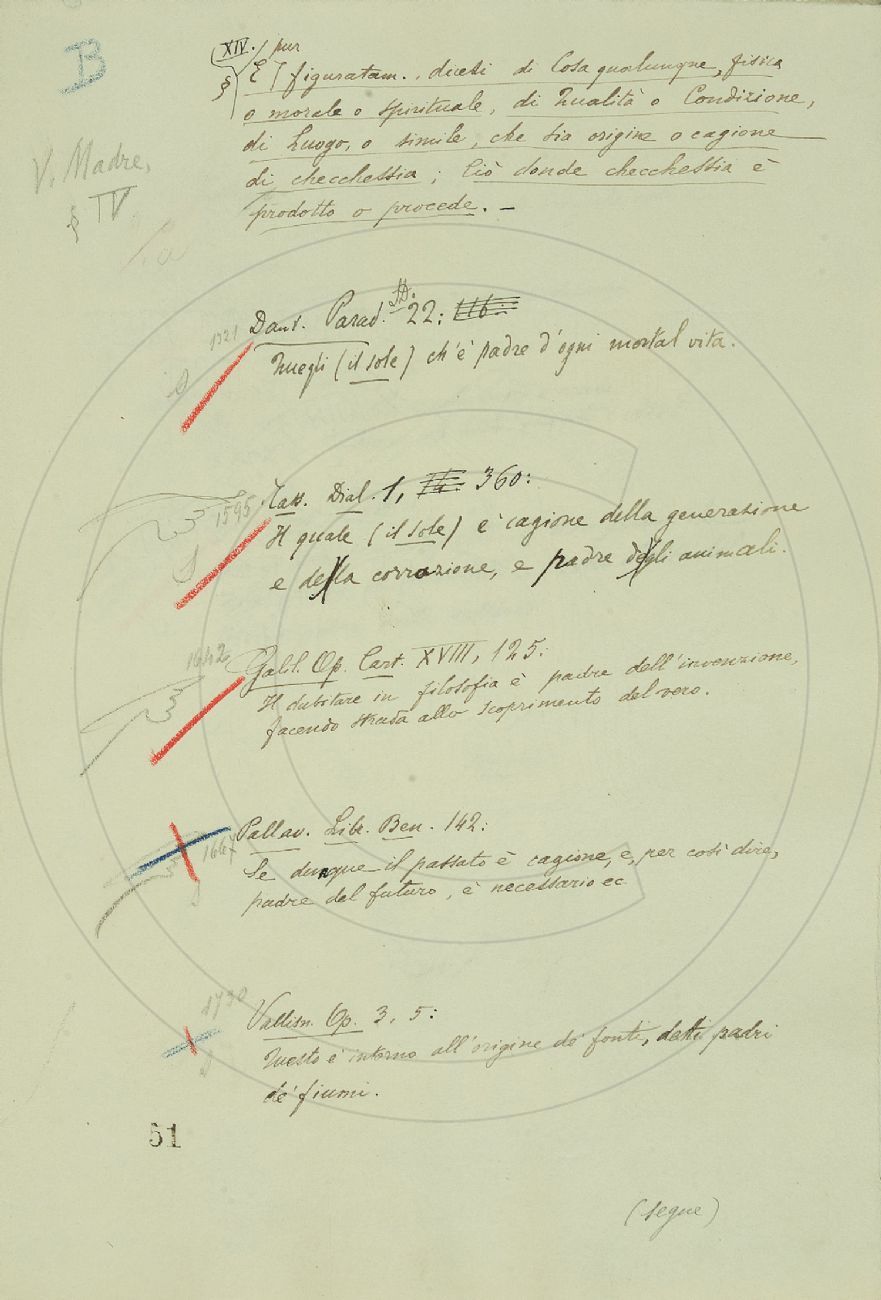 B
XIV. pur
§ E figuratam. dicesi di Cosa qualunque, fisica
o morale o spirituale, di Qualità o Condizione,
di Luogo, o simile, che sia origine o cagione
di checchessia; Ciò donde checchessia è
prodotto o procede. –
V. Madre,
§ IV
1321 Dant. Parad. 22:
Quegli (il sole) ch'è padre d'ogni mortal vita.
1595 Tass. Dial. 1, 360:
Il quale (il sole) è cagione della generazione
e della corrozione, e padre degli animali.
1642 Galil. Op. Cart. XVIII, 125:
Il dubitare in filosofia è padre dell'invenzione,
facendo strada allo scoprimento del vero.
1667 Pallav. Libr. Ben. 142:
Se dunque il passato è cagione, e, per così dire,
padre del futuro, è necessario ec
1730 Vallisn. Op. 3, 5:
Questo è intorno all'origine de' fonti, detti padri
de' fiumi.
51
(segue)